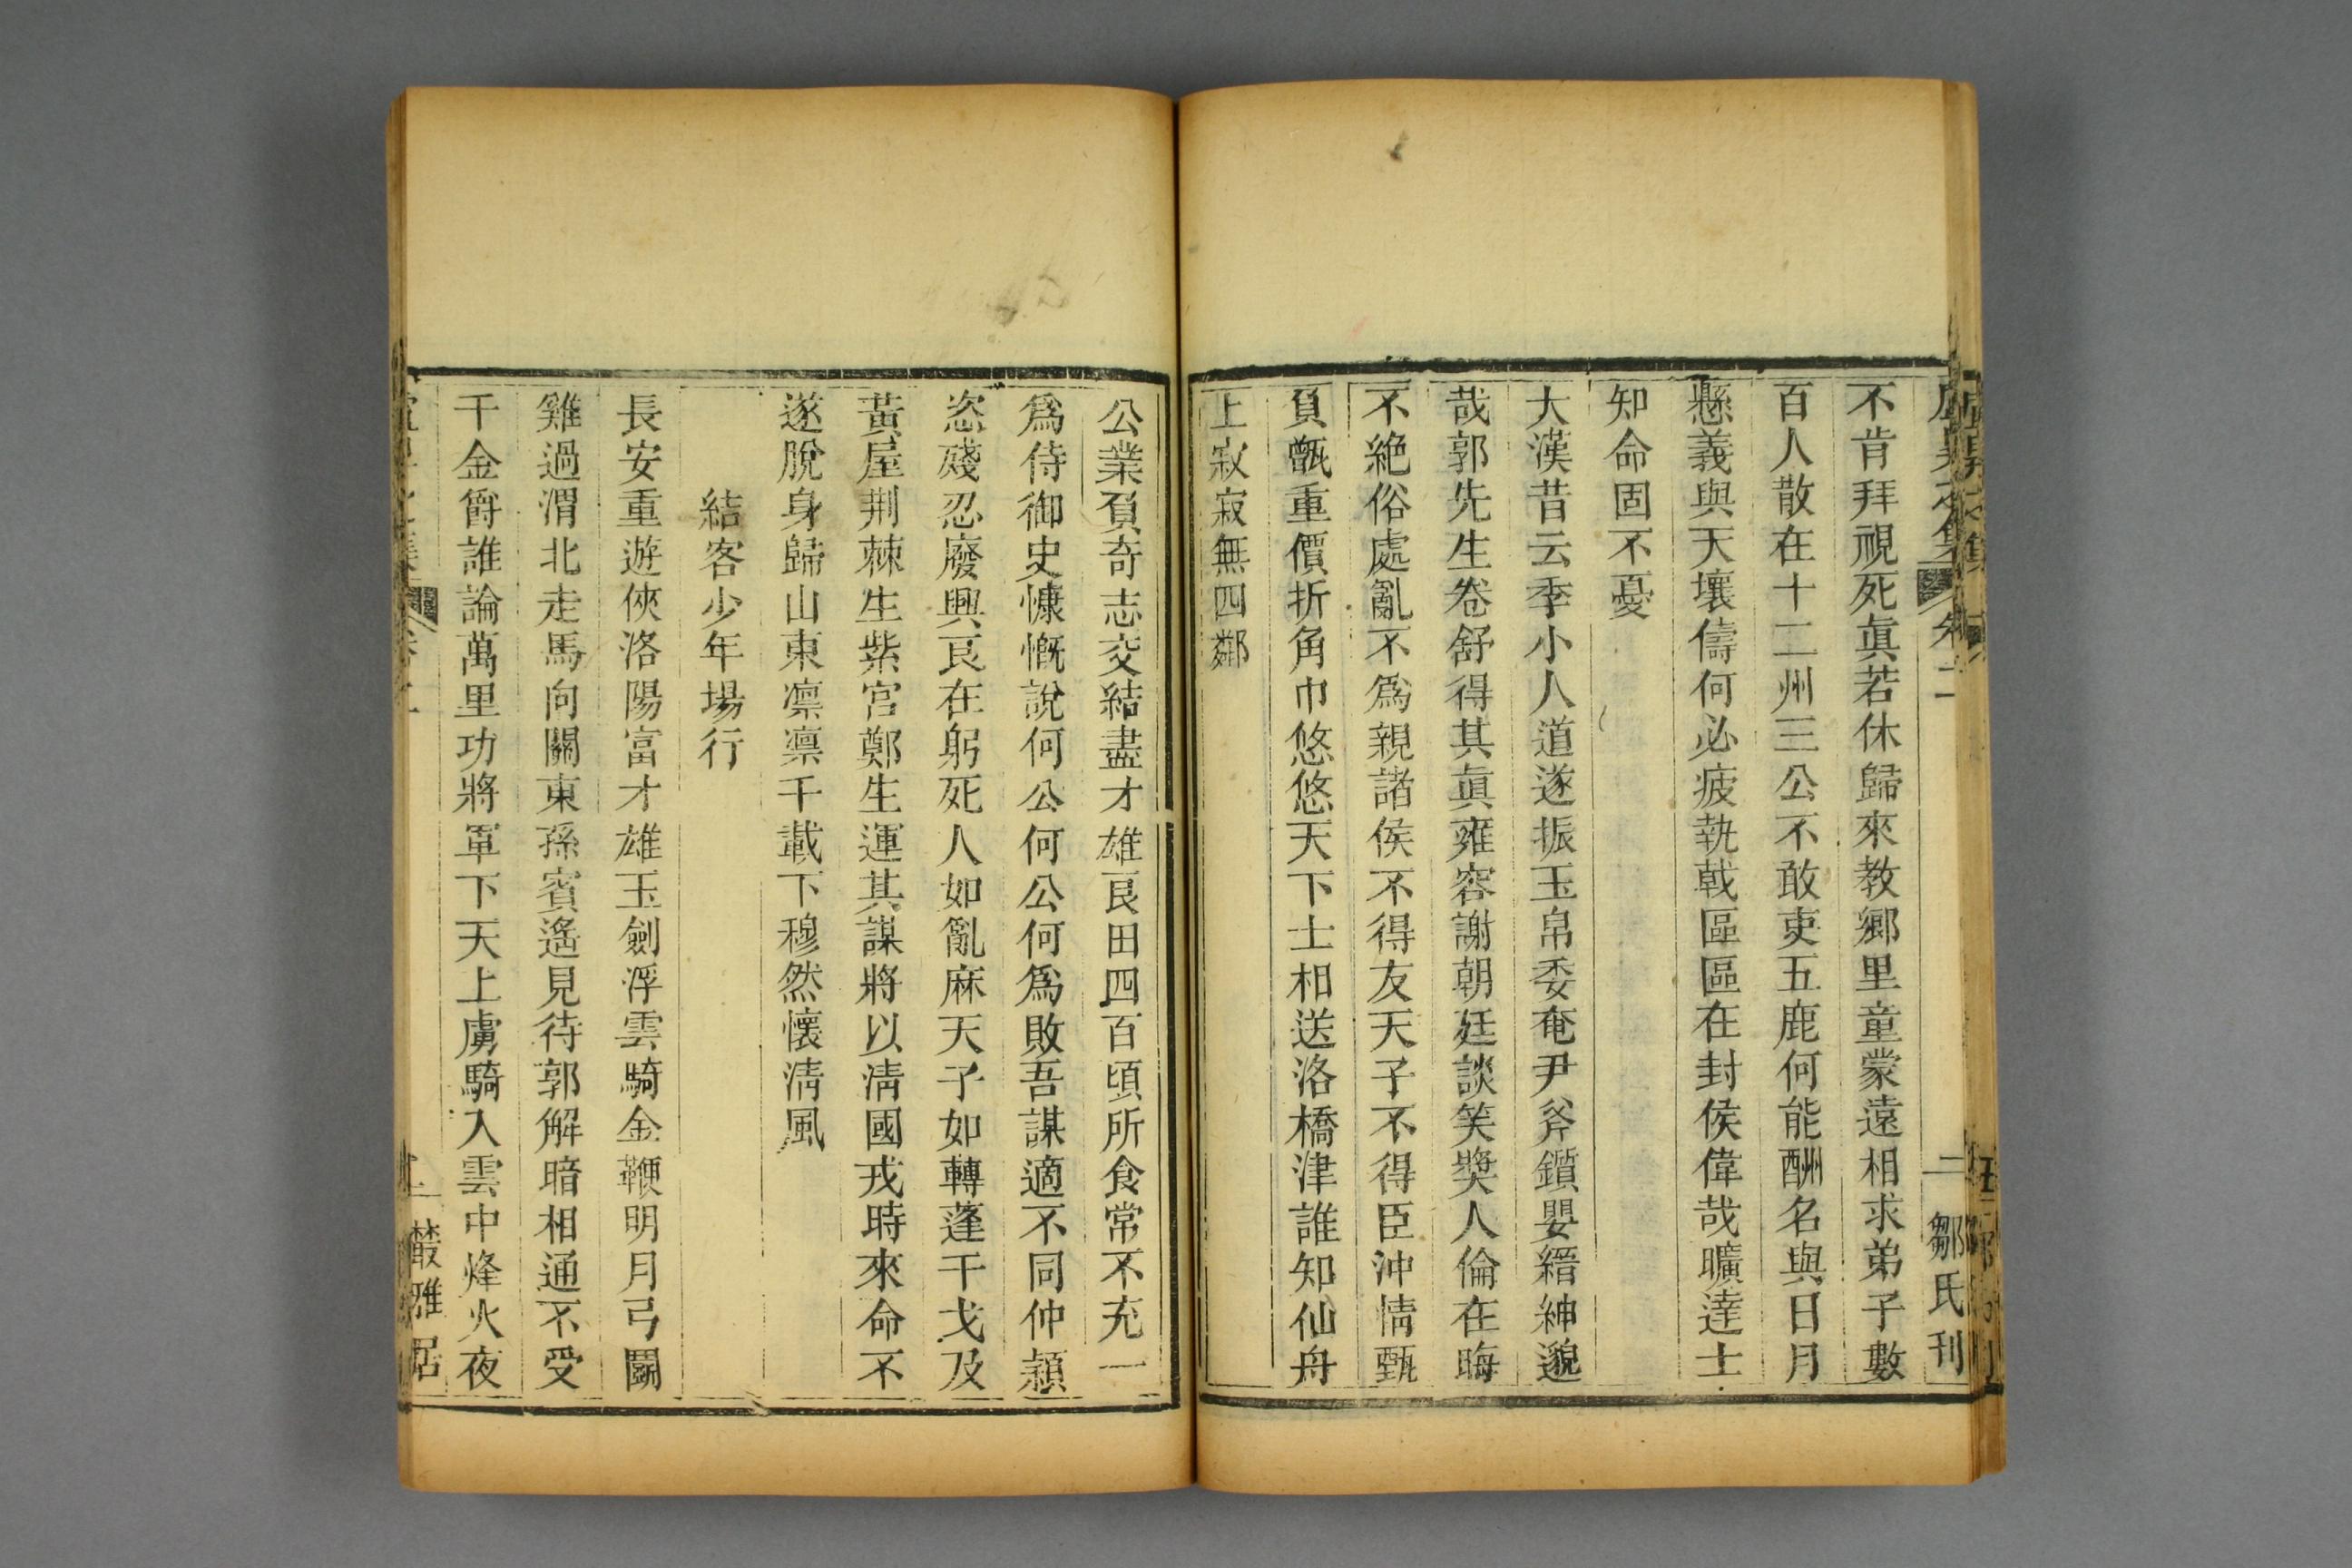 卷二
二 鄒氏刊
不肯拜視死眞若休歸來教鄉里童蒙遠相求弟子數
百人散在十二州三公不敢吏五鹿何能酬名與日月
懸義與天壤儔何必疲執戟區區在封侯偉哉曠達士
知命固不憂
大漢昔云季小人道遂振玉帛委奄尹斧鑕嬰縉紳邈
哉郭先生卷舒得其眞雍容謝朝廷談笑奬人倫在晦
不絶俗處亂不爲親諸侯不得友天子不得臣沖情甄
負甑重價折角巾悠悠天下士相送洛橋津誰知仙舟
上寂寂無四鄰
公業負奇志交結盡才雄良田四百頃所食常不充一
爲侍御史慷慨說何公何公何爲敗吾謀適不同仲穎
恣殘忍廢興良在躬死人如亂麻天子如轉蓬干戈及
黃屋荆棘生紫宮鄭生運其謀將以淸國戎時來命不
遂脫身歸山東凛凛千載下穆然懷淸風
結客少年場行
長安重遊俠洛陽富才雄玉劍浮雲騎金鞭明月弓鬬
雞過渭北走馬向關東孫賓遙見待郭解暗相通不受
千金爵誰論萬里功將軍下天上虜騎入雲中烽火夜
叢雅居